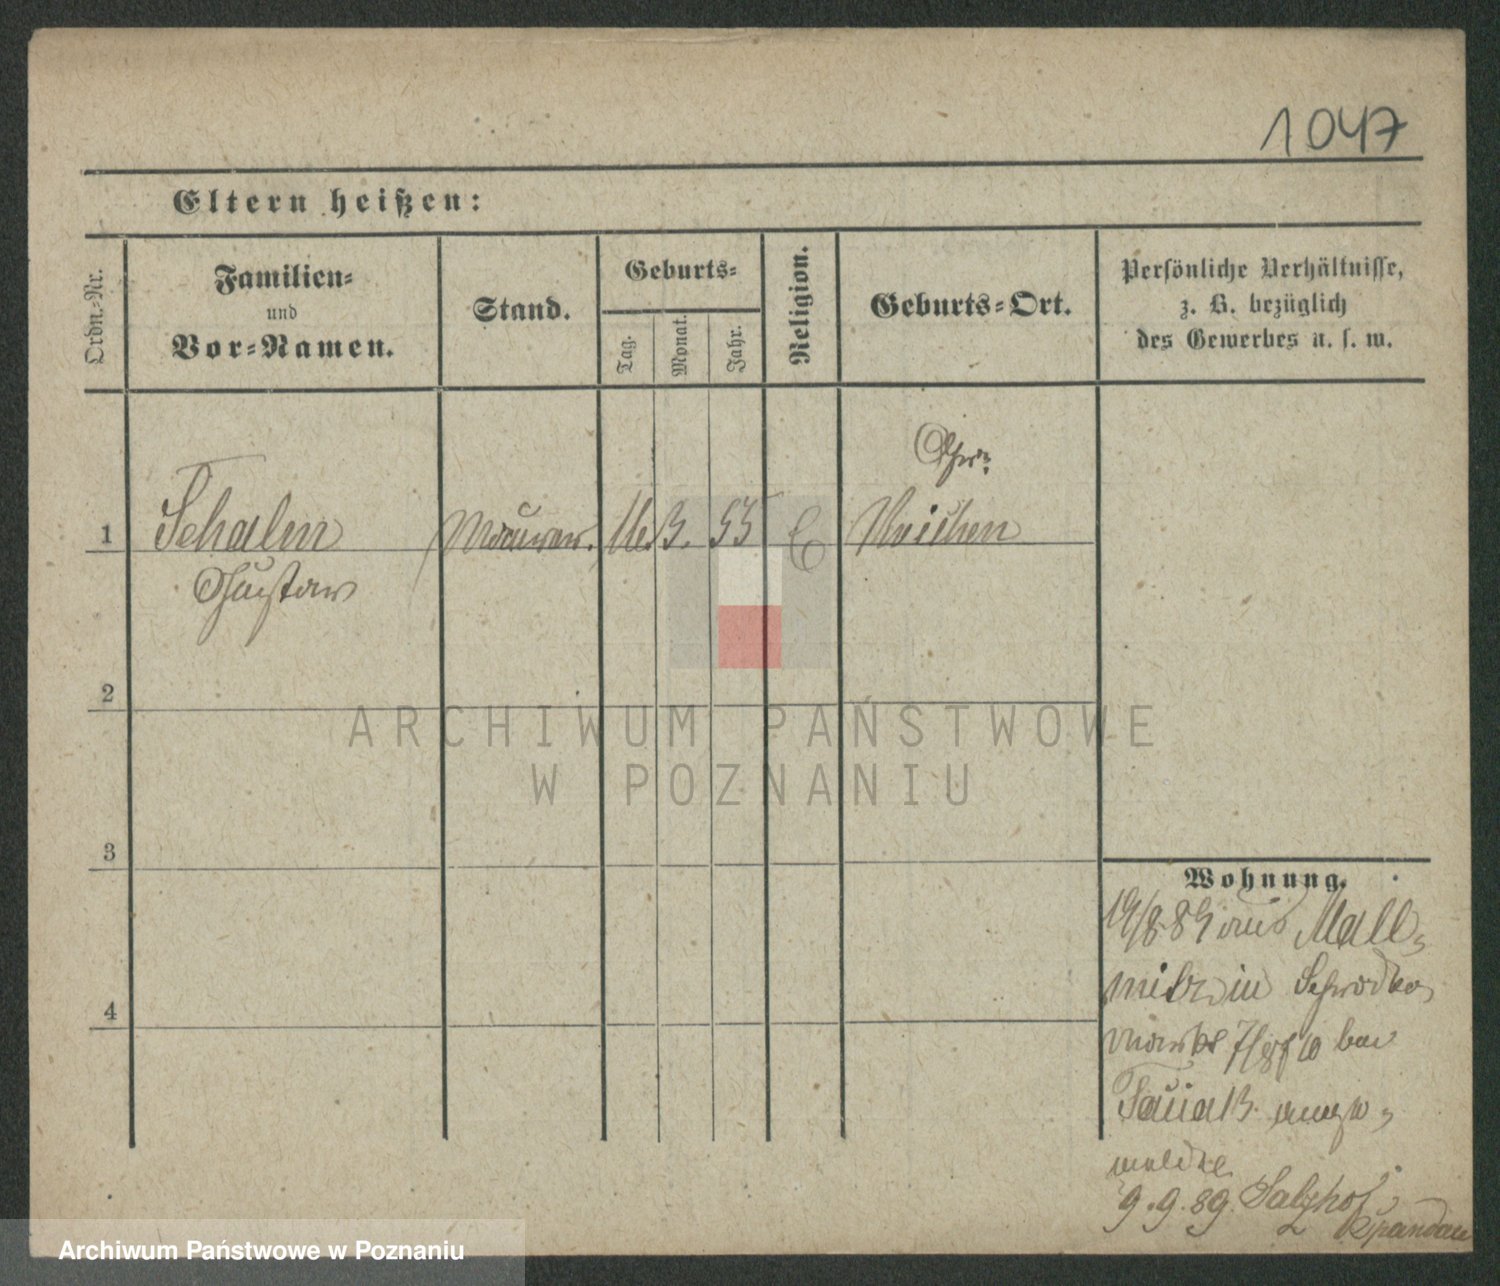 1047
Eltern heißen:
Ordn.-Nr.
Familien-
und
Vor-Namen.
Stand.
Geburts-
Tag.
Monat.
Jahr.
Religion.
Geburts-Ort.
Persönliche Verhältnisse,
z. B. bezüglich
des Gewerbes u. s. w.
1
Schalm
Gustav
Maurer.
16.
3.
55
E
Neichen
2
3
4
Wohnung.
19/8 89 aus Mall-
mitz in Schrodka
markt 7/8 bei
ange-
meldet
9.9.89. Salzhof
Spandau
ARCHIWUM PAŃSTWOWE
W POZNANIU
Archiwum Państwowe w Poznaniu